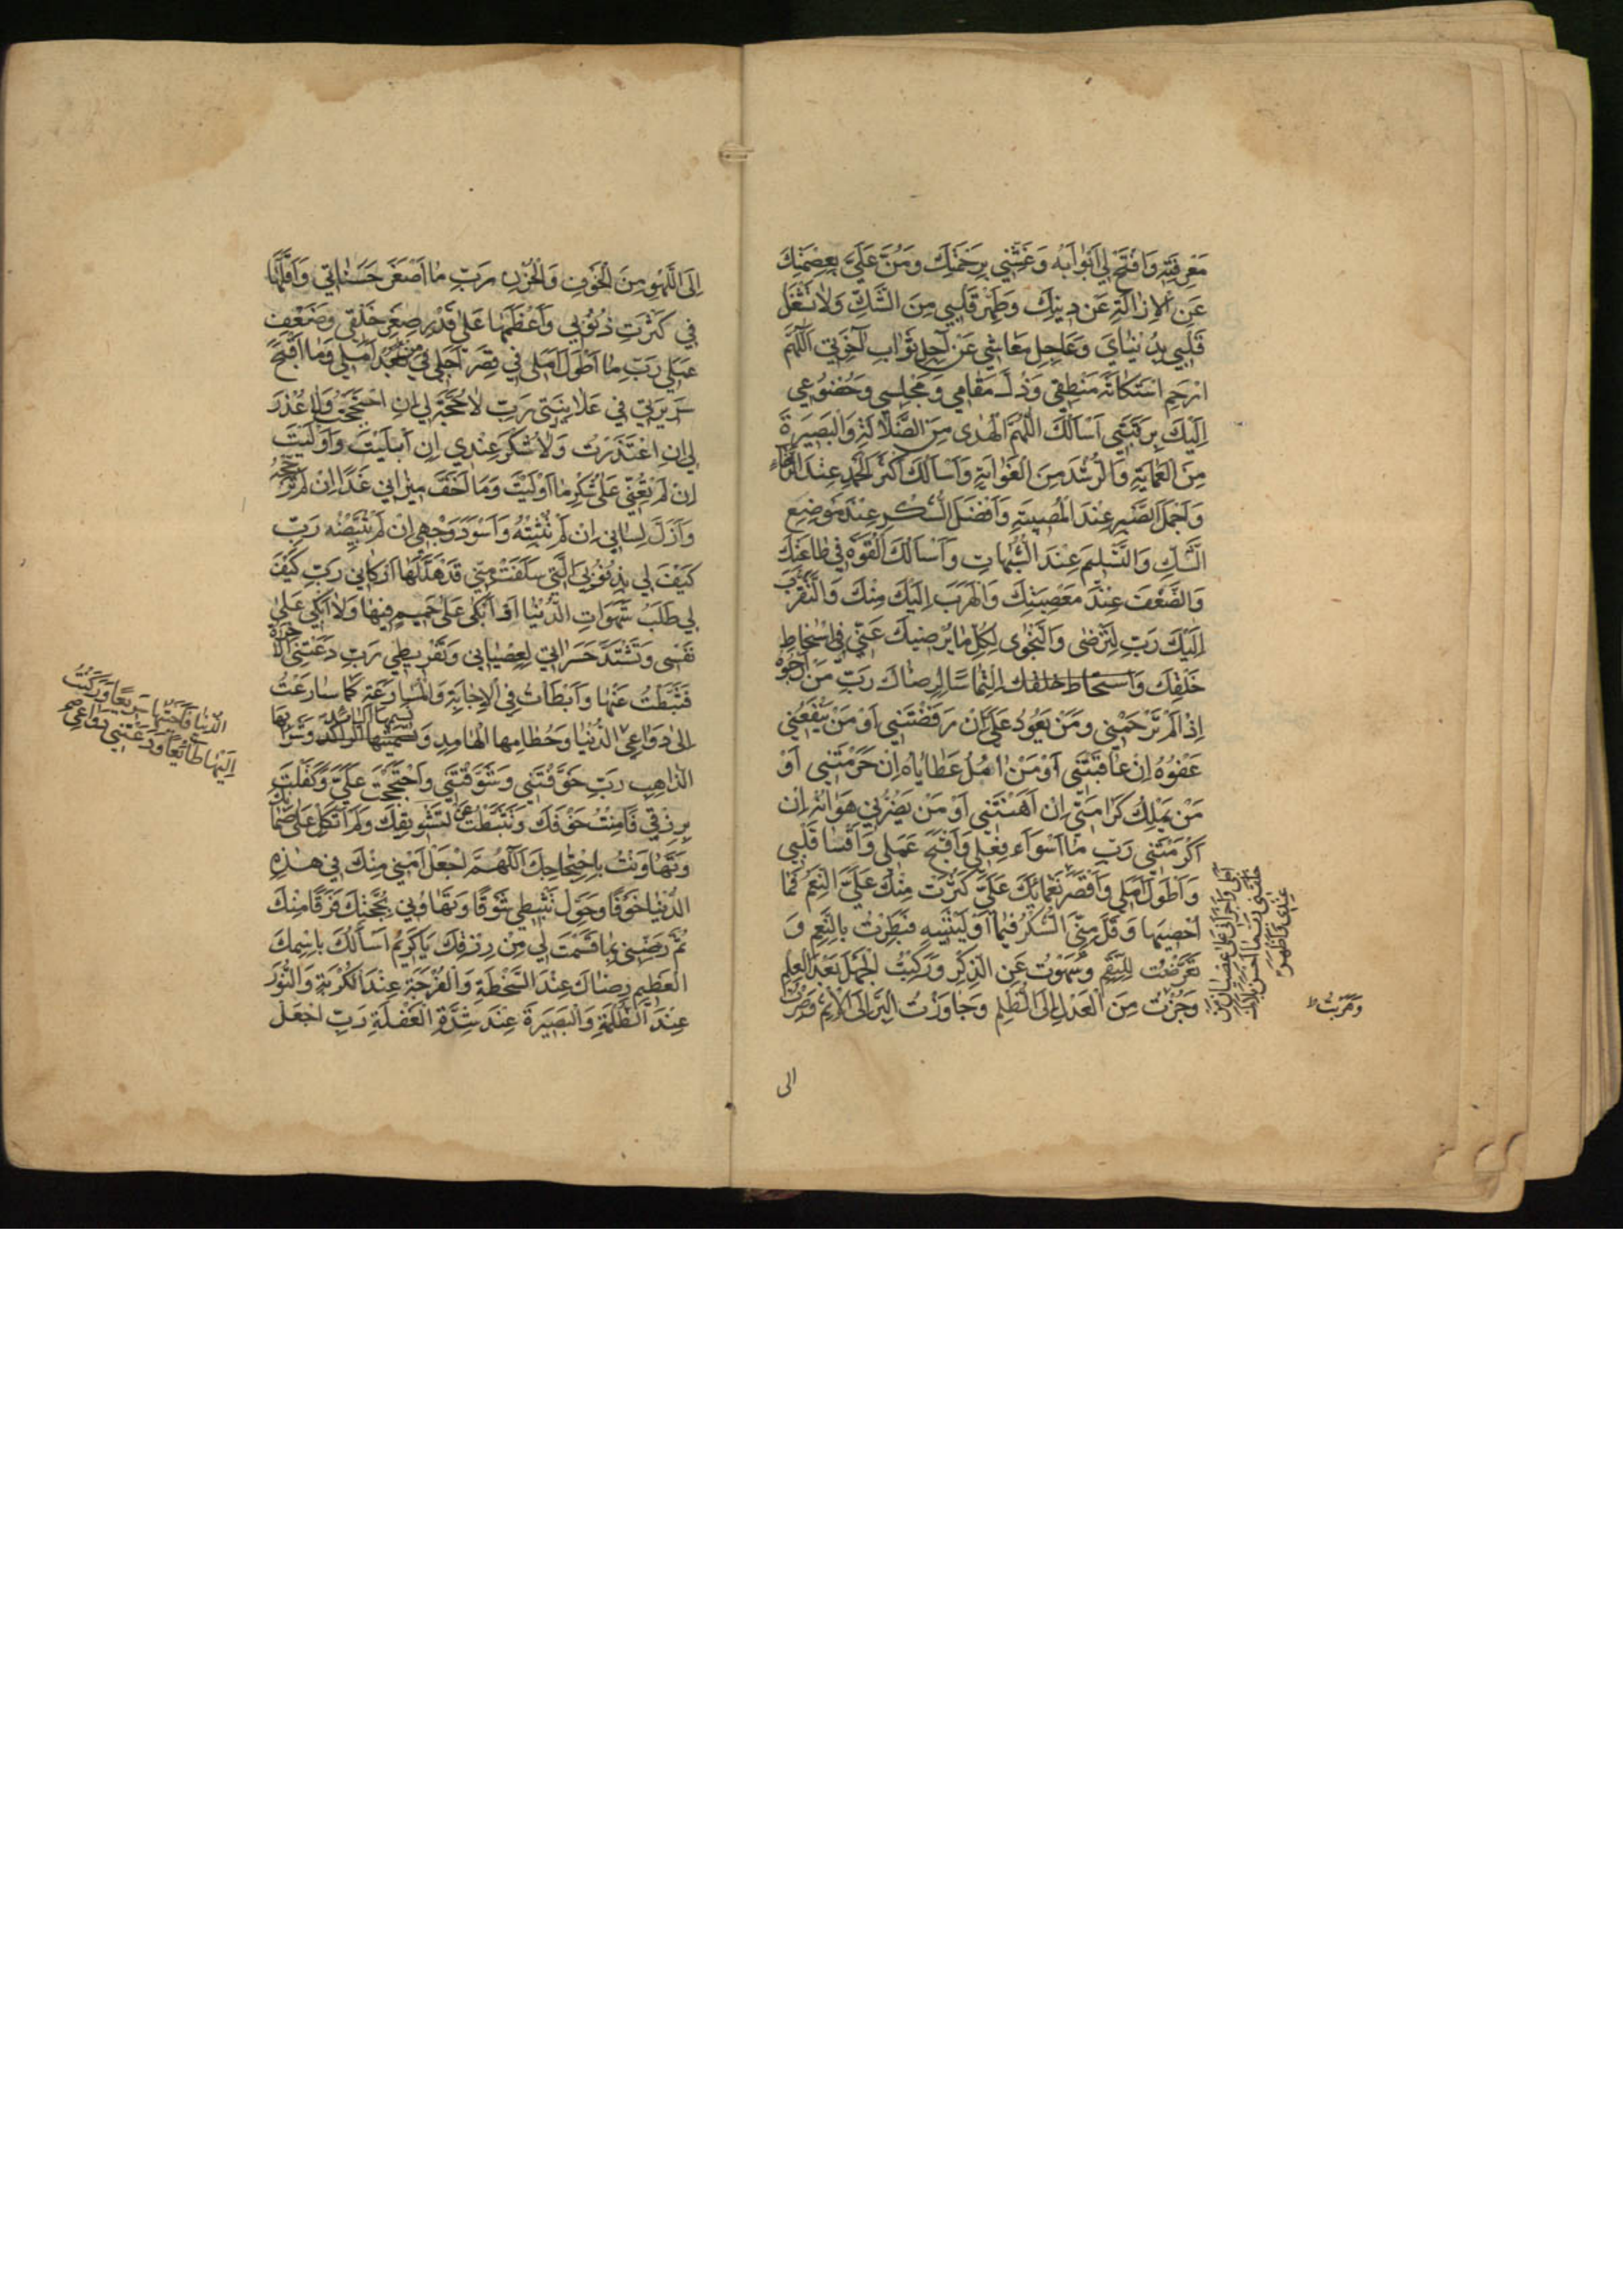 مَعْرِفَتِهِ وَافْتَحْ لِي اَبْوَابَهُ وَغَشِّنِي بِرَحْمَتِكَ وَمُنَّ عَلَيَّ بِعِصْمَتِكَ
عَنِ الْاِزَالَةِ عَن دِينِكَ وَطَهِّرْ قَلْبِي مِنَ الشَّكِّ وَلَا تَشْغَلْ
قَلْبِي بِدُنْيَايَ وَعَاجِلِ مَعَاشِي عَنْ آجِلِ ثَوَابِ آخِرَتِي اَللّٰهُمَّ
ارْحَمِ اسْتِكَانَةَ مَنْطِقِي وَذُلَّ مَقَامِي وَمَجْلِسِي وَخُضُوعِي
اِلَيْكَ بِرَقَبَتِي اَسْاَلُكَ اللّٰهُمَّ الْهُدٰى مِنَ الضَّلَالَةِ وَالْبَصِيرَةَ
مِنَ الْعَمَايَةِ وَالرُّشْدَ مِنَ الْغَوَايَةِ وَاَسْاَلُكَ اَكْثَرَ الْحَمْدِ عِنْدَ الرَّخَاءِ
وَاَجْمَلَ الصَّبْرِ عِنْدَ الْمُصِيبَةِ وَاَفْضَلَ الشُّكْرِ عِنْدَ مَوْضِعِ
الشَّكِّ وَالتَّسْلِيمَ عِنْدَ الشُّبُهَاتِ وَاَسْاَلُكَ الْقُوَّةَ فِي طَاعَتِكَ
وَالضَّعْفَ عِنْدَ مَعْصِيَتِكَ وَالْهَرَبَ اِلَيْكَ مِنْكَ وَالتَّقَرُّبَ
اِلَيْكَ رَبِّ لِتَرْضٰى وَالتَّحَرِّيَ لِكُلِّ مَا يُرْضِيكَ عَنِّي فِي اسْخَاطِ
خَلْقِكَ الْتِمَاسًا لِرِضَاكَ رَبِّ مَنْ اَرْجُوهُ
اِذَا لَمْ تَرْحَمْنِي وَمَنْ يَعُودُ عَلَيَّ اِنْ رَفَضْتَنِي اَوْ مَنْ يَنْفَعُنِي
عَفْوُهُ اِنْ عَاقَبْتَنِي اَوْ مَنْ اٰمُلُ عَطَايَاهُ اِنْ حَرَمْتَنِي اَوْ
مَنْ يَمْلِكُ كَرَامَتِي اِنْ اَهَنْتَنِي اَوْ مَنْ يَضُرُّنِي هَوَانُهُ اِنْ
اَكْرَمْتَنِي رَبِّ مَا اَسْوَاَ فِعْلِي وَاَقْبَحَ عَمَلِي وَاَقْسَا قَلْبِي
وَاَطْوَلَ اَمَلِي وَاَقْصَرَ نَعْمَائِكَ عَلَيَّ كَثُرَتْ مِنْكَ عَلَيَّ النِّعَمُ فَمَا
اُحْصِيهَا وَقَلَّ مِنِّي الشُّكْرُ فِيمَا اَوْلَيْتَنِيهِ فَبَطِرْتُ بِالنِّعَمِ وَ
تَعَرَّضْتُ لِلنِّقَمِ وَسَهَوْتُ عَنِ الذِّكْرِ وَرَكِبْتُ الْجَهْلَ بَعْدَ الْعِلْمِ
وَجُزْتُ مِنَ الْعَدْلِ اِلَى الظُّلْمِ وَجَاوَزْتُ الْبِرَّ اِلَى الْاِثْمِ وَصِرْتُ
اَجَلِي وَاَجْرَاَنِي عَلٰى عِصْيَانِ مَنْ
خَلَقَنِي رَبِّ مَا اَحْسَنَ بَلَاءَكَ
عِنْدِي وَاَظْهَرَ
وَهَرَبْتُ ظ
الى
اِلَى اللَّهْوِ مِنَ الْخَوْفِ وَالْحُزْنِ رَبِّ مَا اَصْغَرَ حَسَنَاتِي وَاَقَلَّهَا
فِي كَثْرَتِ ذُنُوبِي وَاَعْظَمَهَا عَلٰى قَدْرِ صِغَرِ خَلْقِي وَضَعْفِ
عَمَلِي رَبِّ مَا اَطْوَلَ اَمَلِي فِي قِصَرِ اَجَلِي فِي بُعْدِ اَمَلِي وَمَا اَقْبَحَ
سَرِيرَتِي فِي عَلَانِيَتِي رَبِّ لَا حُجَّةَ لِي اِنِ احْتَجَجْتُ وَلَا عُذْرَ
لِي اِنِ اعْتَذَرْتُ وَلَا شُكْرَ عِنْدِي اِنْ اَبْلَيْتَ وَاَوْلَيْتَ
اِنْ لَمْ تُعِنِّي عَلٰى شُكْرِ مَا اَوْلَيْتَ وَمَا اَخَفَّ مِيزَانِي غَدًا اِنْ لَمْ تُرَجِّحْهُ
وَاَزَلَّ لِسَانِي اِنْ لَمْ تُثَبِّتْهُ وَاَسْوَدَ وَجْهِي اِنْ لَمْ تُبَيِّضْهُ رَبِّ
كَيْفَ لِي بِذُنُوبِيَ الَّتِي سَلَفَتْ مِنِّي قَدْ هَدَّلَهَا اَرْكَانِي رَبِّ كَيْفَ
لِي طَلَبُ شَهَوَاتِ الدُّنْيَا اَوْ اَبْكِي عَلٰى حَمِيمٍ فِيهَا وَلَا اَبْكِي عَلٰى
نَفْسِي وَتَشْتَدَّ حَسَرَاتِي لِعِصْيَانِي وَتَفْرِيطِي رَبِّ دَعَتْنِي
فَثَبَّطْتُ عَنْهَا وَاَبْطَاْتُ فِي الْاِجَابَةِ وَالْمُسَارَعَةِ كَمَا سَارَعْتُ
اِلٰى دَوَاعِي الدُّنْيَا وَحُطَامِهَا الْهَامِدِ وَ
الذَّاهِبِ رَبِّ خَوَّفْتَنِي وَشَوَّقْتَنِي وَاحْتَجَجْتَ عَلَيَّ وَكَفَلْتَ
بِرِزْقِي فَاَمِنْتُ خَوْفَكَ وَتَثَبَّطْتُ عَنْ تَشْوِيقِكَ وَلَمْ اَتَّكِلْ عَلٰى ضَمَانِكَ
وَتَهَاوَنْتُ بِاحْتِجَاجِكَ اَللّٰهُمَّ اجْعَلْ اَمْنِي مِنْكَ فِي هٰذِهِ
الدُّنْيَا خَوْفًا وَحَوِّلْ تَثَبُّطِي شَوْقًا وَتَهَاوُنِي بِحُجَّتِكَ فَرَقًا مِنْكَ
ثُمَّ رَضِّنِي بِمَا قَسَمْتَ لِي مِنْ رِزْقِكَ يَا كَرِيمُ اَسْاَلُكَ بِاسْمِكَ
الْعَظِيمِ رِضَاكَ عِنْدَ السَّخْطَةِ وَالْفُرْجَةَ عِنْدَ الْكُرْبَةِ وَالنُّورَ
عِنْدَ الظُّلْمَةِ وَالْبَصِيرَةَ عِنْدَ شِدَّةِ الْغَفْلَةِ رَبِّ اجْعَلْ
الدُّنْيَا فَاَجَبْتُهَا سَرِيعًا وَرَكَنْتُ
اِلَيْهَا طَائِعًا وَدَعَتْنِي دَوَاعِي